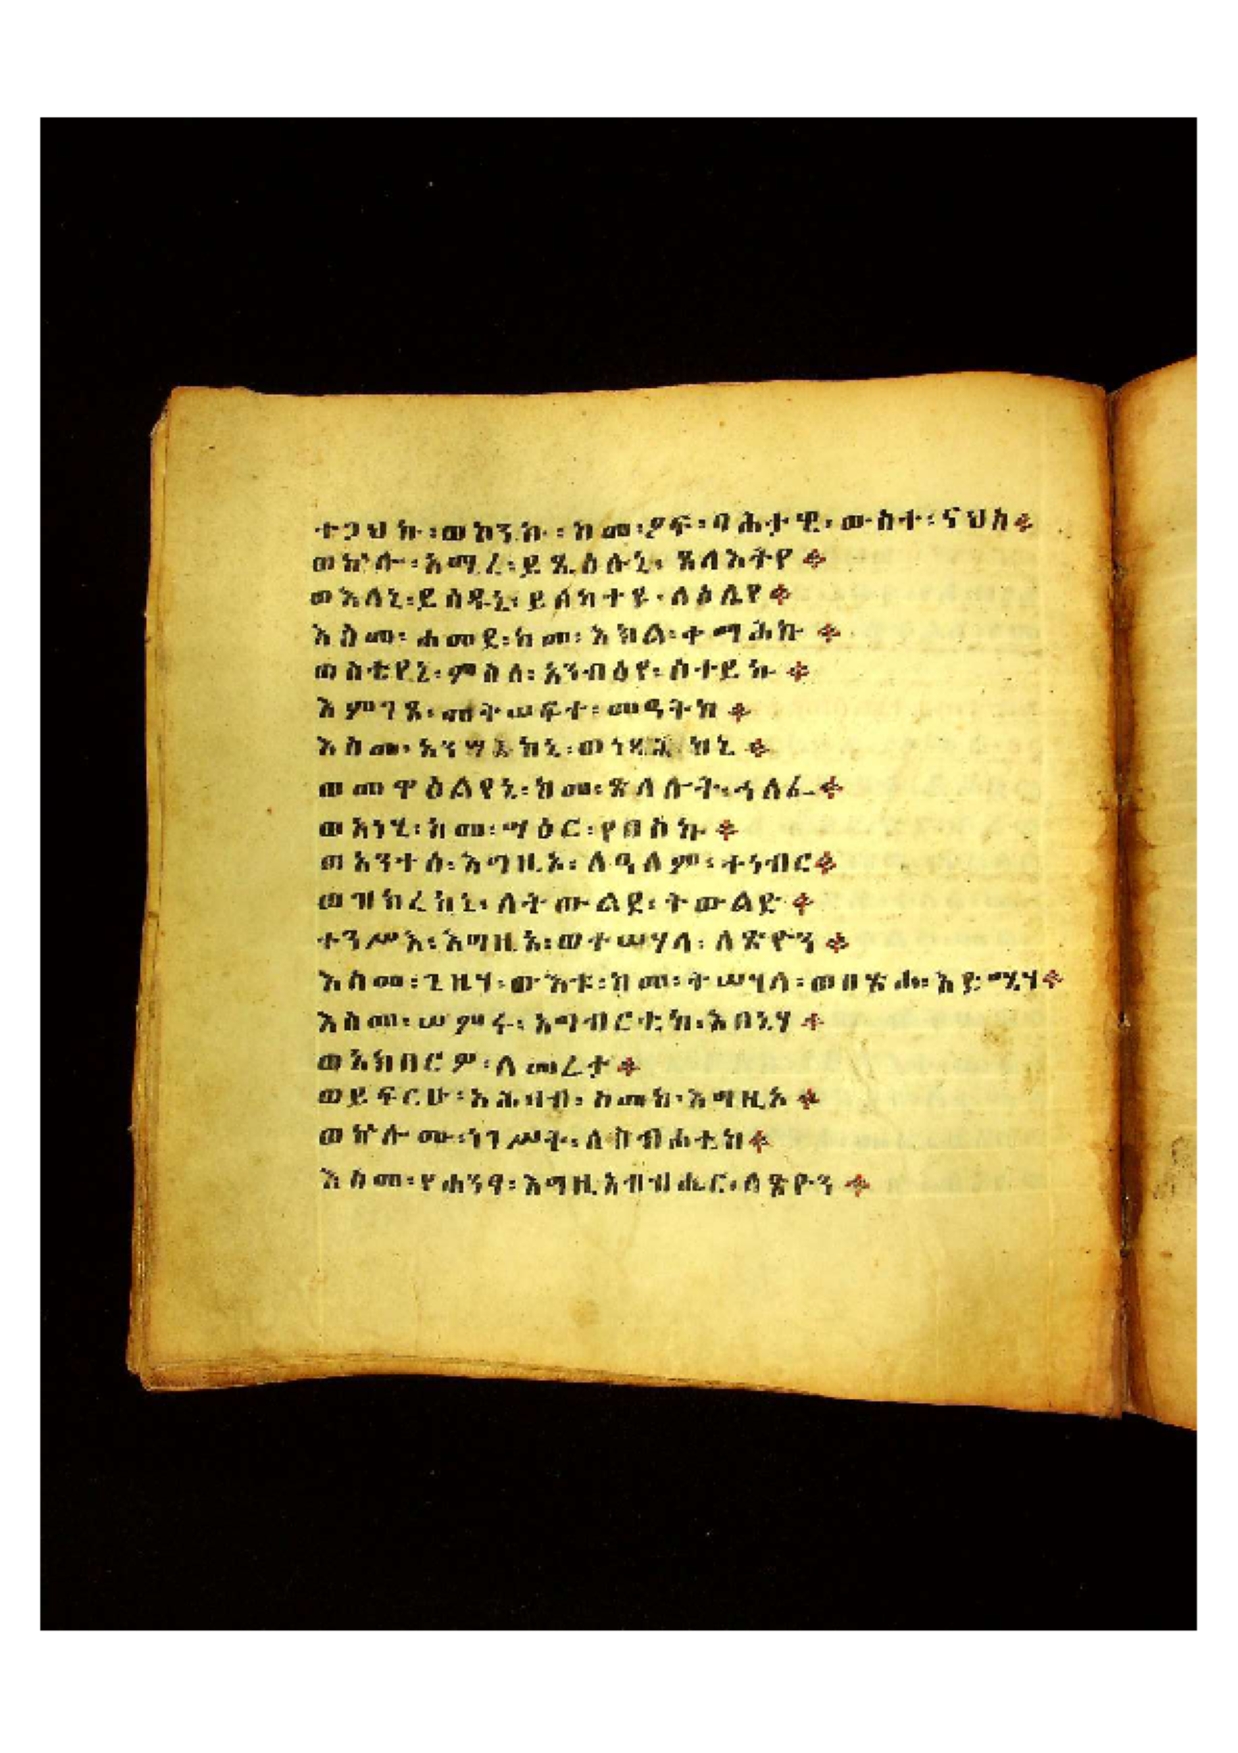 ተጋህኩ፡ወኮንኩ፡ከመ፡ዖፍ፡ባሕታዊ፡ውስተ፡ናህስ፨
ወኵሎ፡አሚረ፡ይጼዕሉኒ፡ጸላእትየ፨
ወእለኒ፡ይሰዱኒ፡ይስክተዩ፡ላዕሌየ፨
እስመ፡ሐመደ፡ከመ፡እክል፡ቀማሕኩ፨
ወስቴየኒ፡ምስለ፡አንብዕየ፡ሰተይኩ፨
እምገጸ፡መቅሠፍተ፡መዓትከ፨
እስመ፡አንሣእከኒ፡ወነፃኅከኒ፨
ወመዋዕልየኒ፡ከመ፡ጽላሎት፡ኃለፈ፨
ወአነሂ፡ከመ፡ሣዕር፡የበስኩ፨
ወአንተሰ፡እግዚኦ፡ለዓለም፡ተነብር፨
ወዝክረከኒ፡ለትውልደ፡ትውልድ፨
ተንሥእ፡እግዚኦ፡ወተሠሃላ፡ለጽዮን፨
እስመ፡ጊዜሃ፡ውእቱ፡ከመ፡ትሣሃላ፡ወበጽሐ፡እድሜሃ፨
እስመ፡ሠምሩ፡አግብርቲከ፡እበኒሃ፨
ወአክበርዎ፡ለመሬታ፨
ወይፍርሁ፡አሕዛብ፡ስመከ፡እግዚኦ፨
ወኵሎሙ፡ነገሥት፡ለስብሐቲከ፨
እስመ፡የሐንፃ፡እግዚአብሔር፡ለጽዮን፨